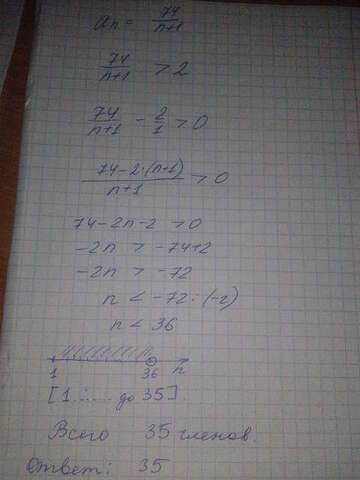 an = 74/(n+1)
74/(n+1) > 2
74/(n+1) - 2/1 > 0
(74-2·(n+1))/(n+1) > 0
74-2n-2 > 0
-2n > -74+2
-2n > -72
n < -72:(-2)
n < 36
1 36 n
[1...... до 35].
Всего 35 членов.
Ответ: 35